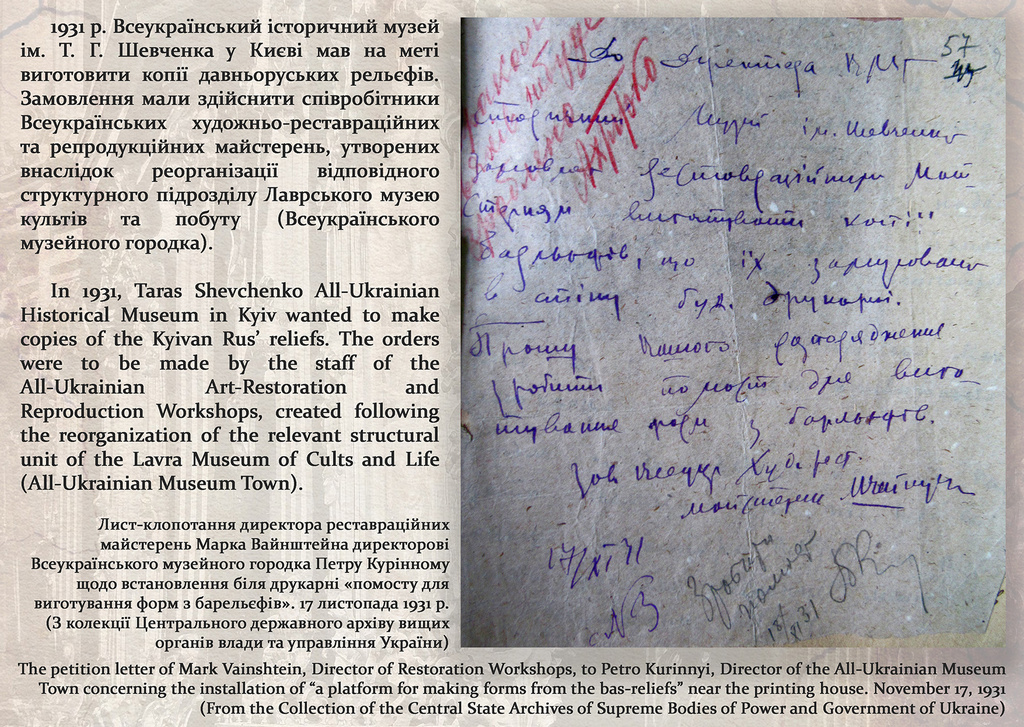 1931 р. Всеукраїнський історичний музей
ім. Т. Г. Шевченка у Києві мав на меті
виготовити копії давньоруських рельєфів.
Замовлення мали здійснити співробітники
Всеукраїнських художньо-реставраційних
та репродукційних майстерень, утворених
внаслідок реорганізації відповідного
структурного підрозділу Лаврського музею
культів та побуту (Всеукраїнського
музейного городка).
In 1931, Taras Shevchenko All-Ukrainian
Historical Museum in Kyiv wanted to make
copies of the Kyivan Rus’ reliefs. The orders
were to be made by the staff of the
All-Ukrainian Art-Restoration and
Reproduction Workshops, created following
the reorganization of the relevant structural
unit of the Lavra Museum of Cults and Life
(All-Ukrainian Museum Town).
Лист-клопотання директора реставраційних
майстерень Марка Вайнштейна директорові
Всеукраїнського музейного городка Петру Курінному
щодо встановлення біля друкарні «помосту для
виготування форм з барельєфів». 17 листопада 1931 р.
(З колекції Центрального державного архіву вищих
органів влади та управління України)
57
До Директора ВМГ
Історичний Музей ім. Шевченка
Реставраційним Май
стерням виготувати копії
барльєфів, що їх замуровано
в стіну буд. друкарні.
Прошу Вашого розпорядження
зробити поміст для виго
тування форм з барльєфів.
Худ. рест.
майстерень
17/XI 31
Зробити
поміст
18/XI 31
The petition letter of Mark Vainshtein, Director of Restoration Workshops, to Petro Kurinnyi, Director of the All-Ukrainian Museum
Town concerning the installation of “a platform for making forms from the bas-reliefs” near the printing house. November 17, 1931
(From the Collection of the Central State Archives of Supreme Bodies of Power and Government of Ukraine)